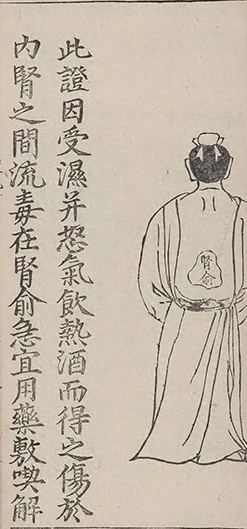 此證因受濕并怒氣飲熱酒而得之傷於
內腎之間流毒在腎俞急宜用藥敷喫解
腎俞